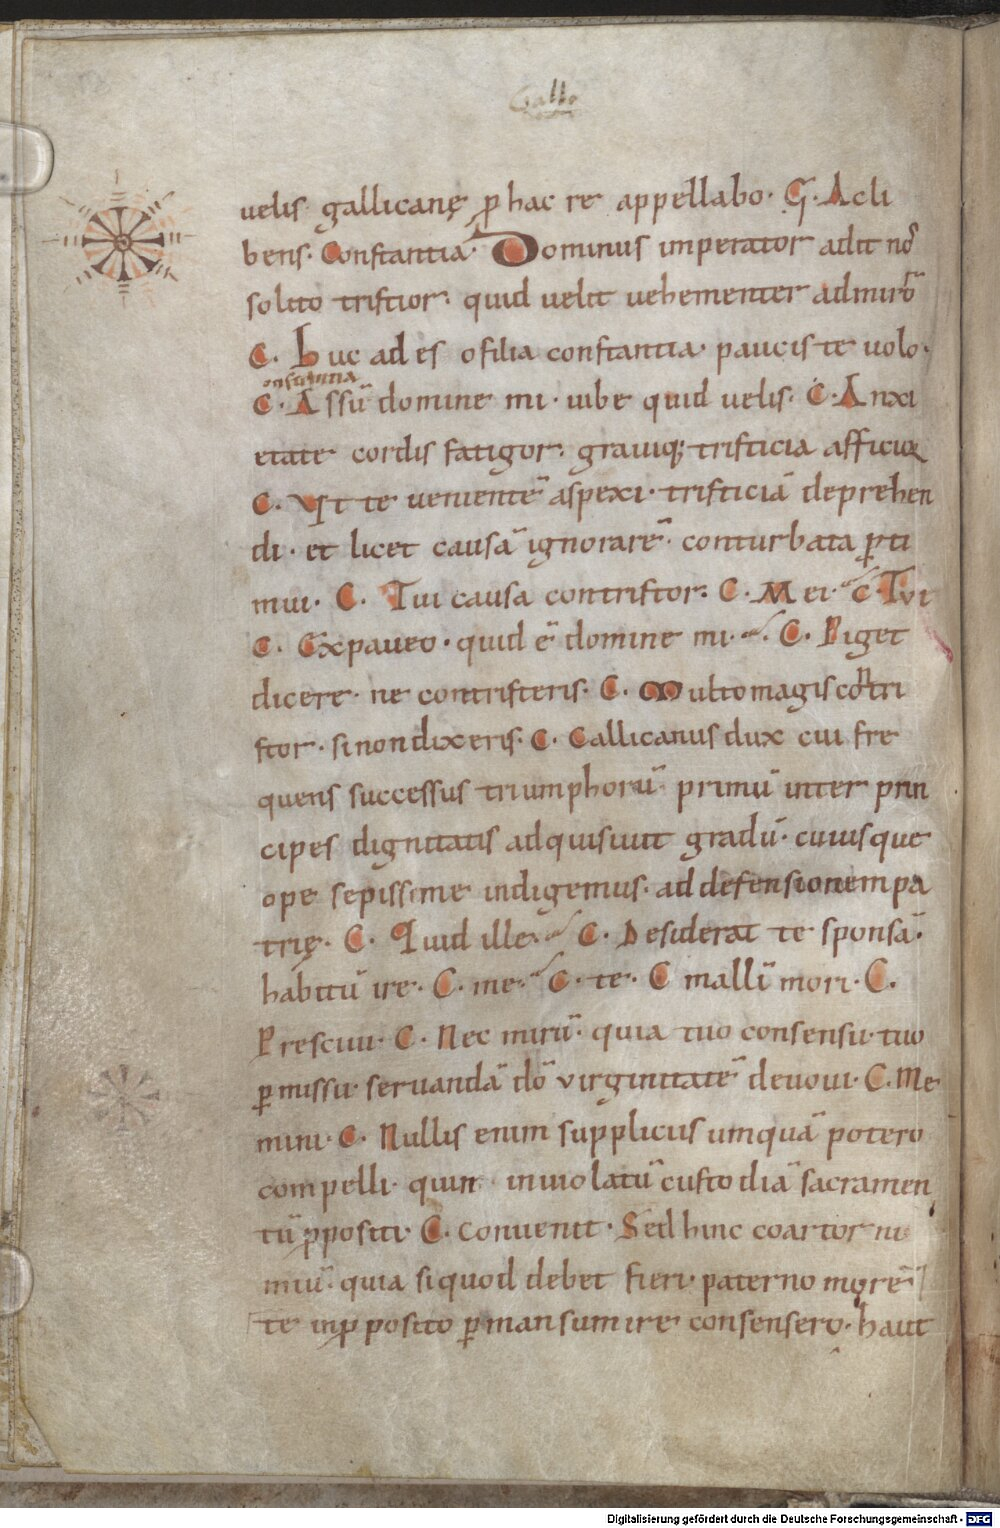 Gallo
uelis gallicanę p̄ hac re appellabo· G· Acli
bens· Constantia· Dominus imperator adit nō
solito tristior· quid uelit uehementer admirō
C· Huc ades o filia constantia· paucis te uolo·
onstantia
C· Assū domine mi· iube quid uelis· C· Anxi
etate cordis fatigor· grauiq; tristicia afficior
C· Vt te uenientē aspexi· tristiciā deprehen
di· et licet causā ignorarē· conturbata ꝑti
mui· C· Tui causa contristor· C· Mei· C· Tui
C· Expaueo· quid ē domine mi· C· Piget
dicere· ne contristeris· C· Multo magis contri
stor· si non dixeris· C· Gallicanus dux cui fre
quens successus triumphorū primū inter prin
cipes dignitatis adquisiuit gradū· cuiusque
ope sepissime indigemus· ad defensionem pa
trię· C· Quid ille· C· Desiderat te sponsā·
habitū ire· C· me· C· te· C mallē mori· C·
Prescius· C· Nec mirū· quia tuo consensu· tuo
ꝑmissu· seruandā dō uirginitatē deuoui· C· Me
mini· C· Nullis enim suppliciis umquā potero
compelli· quin inuiolatū custodiā sacramen
tū ꝓpositi· C· Conuenit· Sed hinc coartor ni
miū· quia si quod debet fieri· paterno more
te in ꝓposito ꝑmansum ire consensero· haut
Digitalisierung gefördert durch die Deutsche Forschungsgemeinschaft - DFG